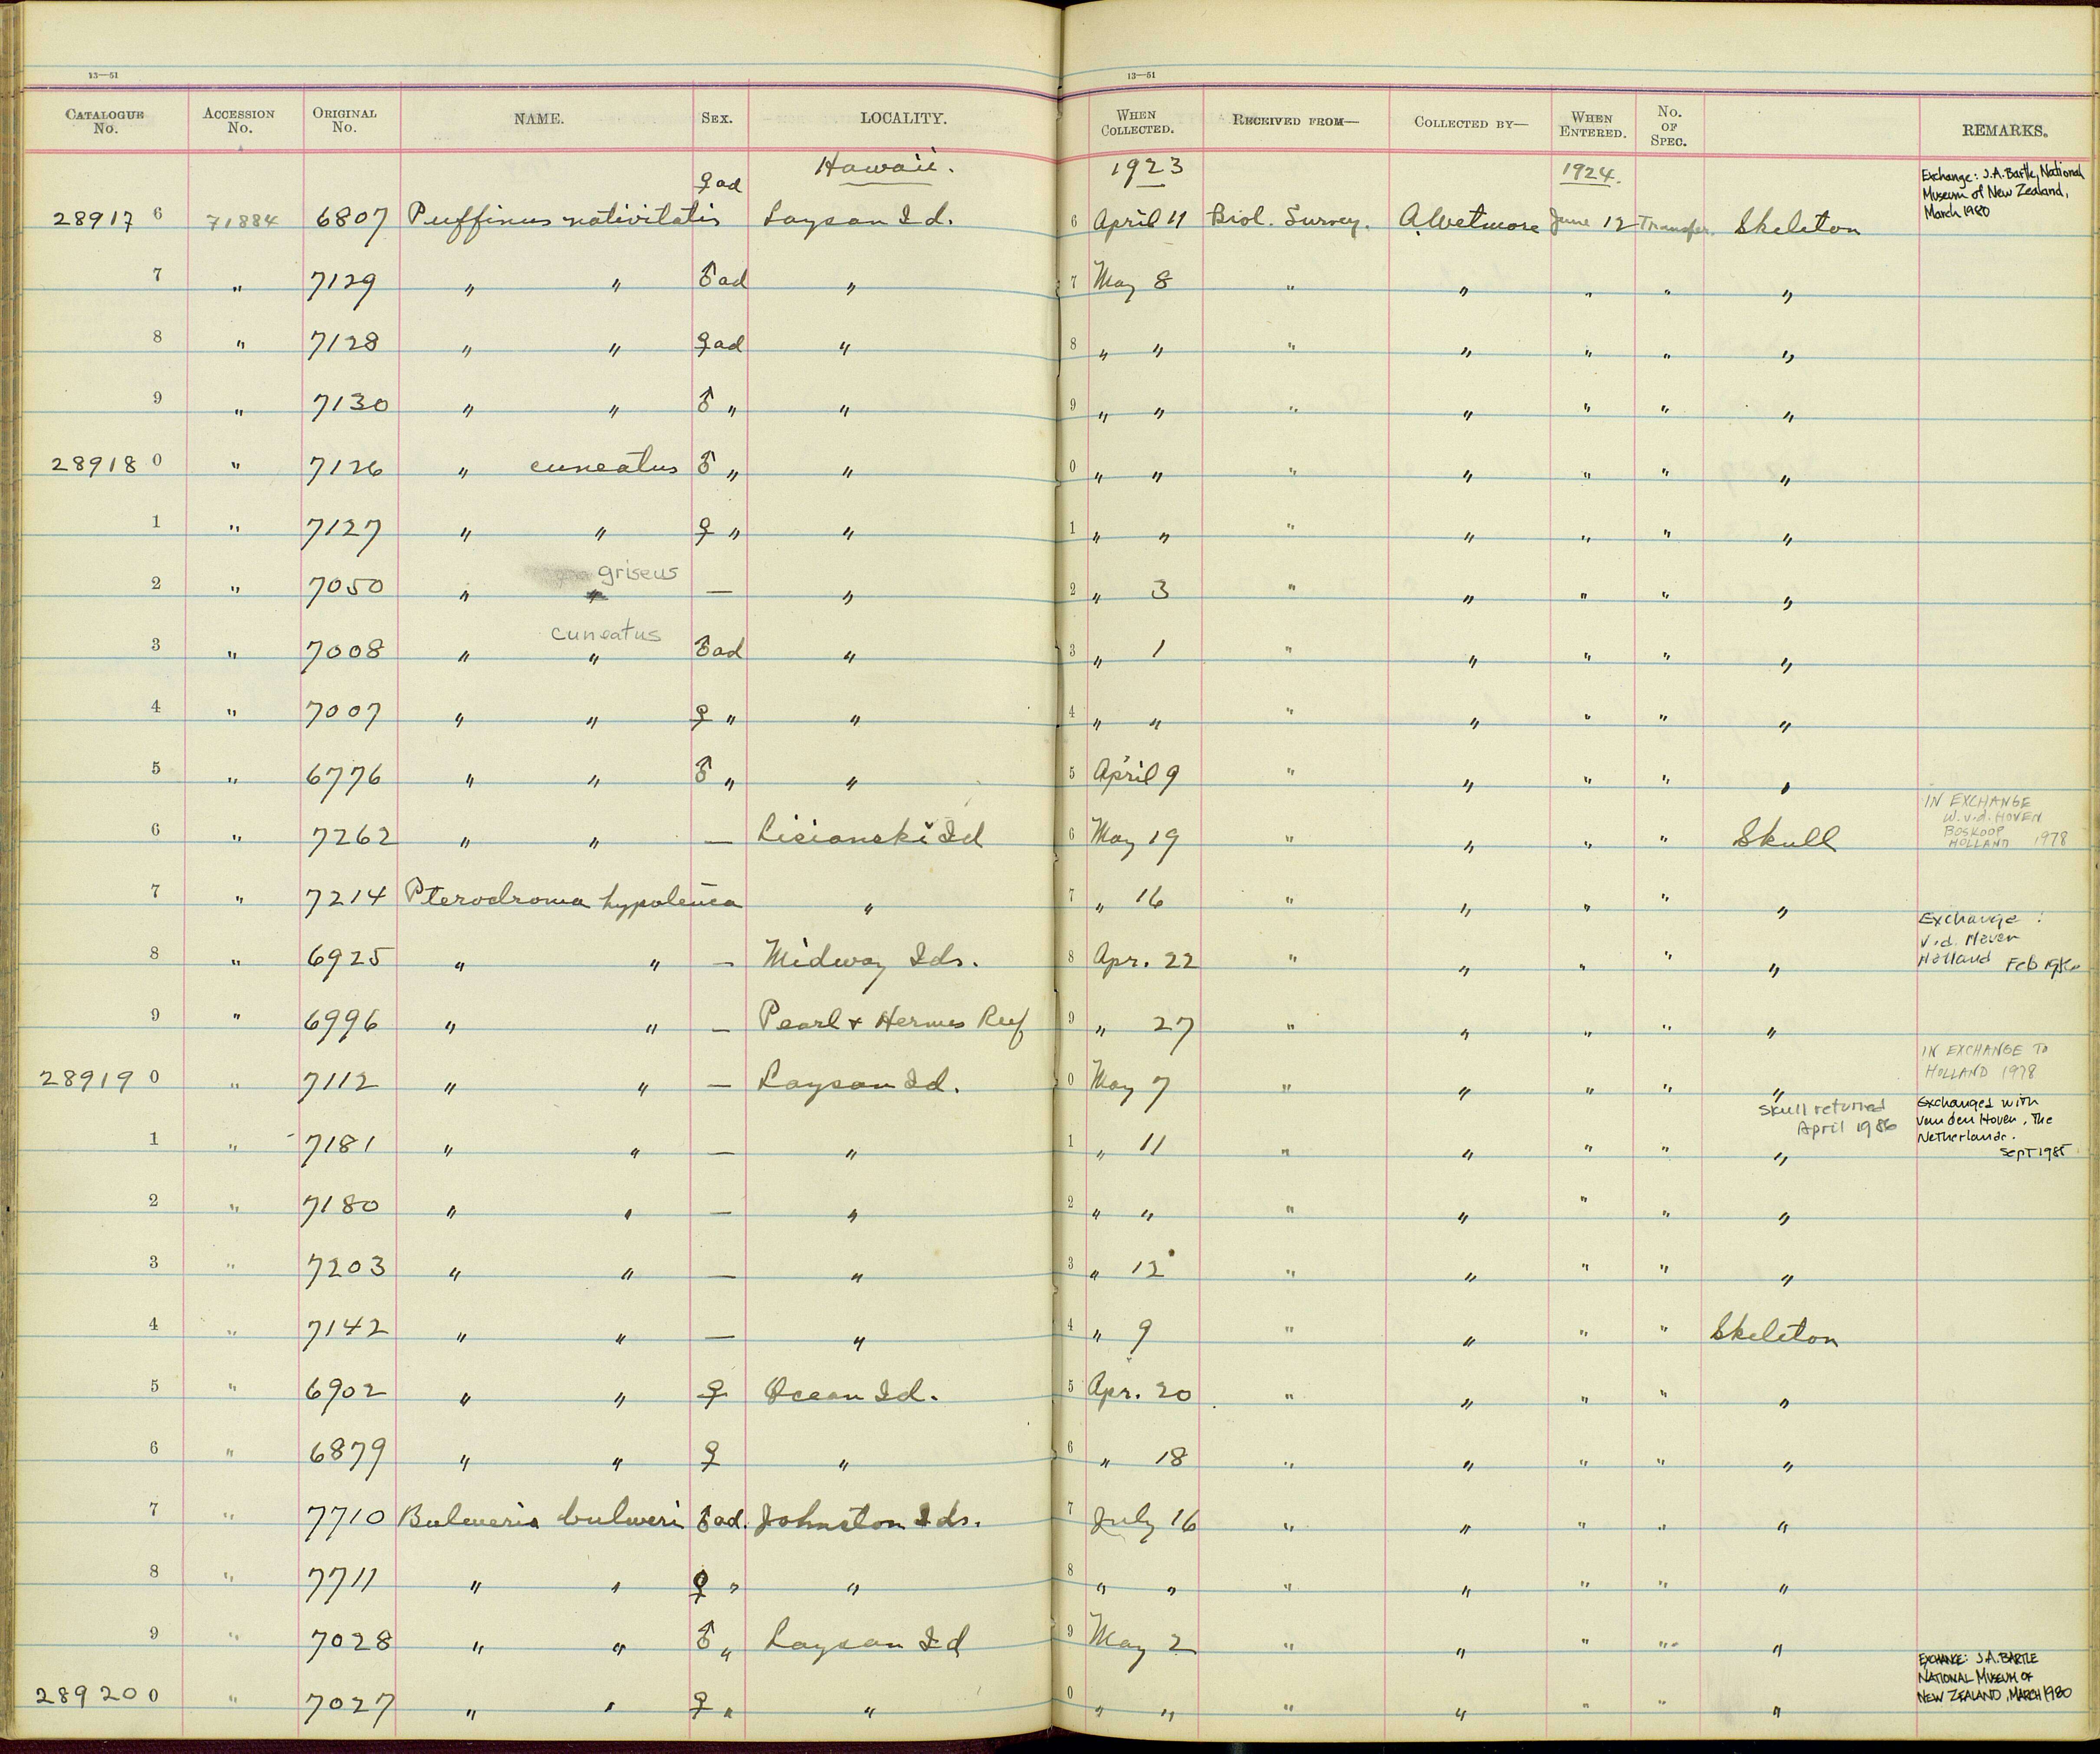 13—51 13—51
CATALOGUE No. ACCESSION No. ORIGINAL No. NAME. SEX. LOCALITY. WHEN COLLECTED. RECEIVED FROM— COLLECTED BY— WHEN ENTERED. No. OF SPEC. REMARKS.
Hawaii. 1923 1924.
28917 6 71884 6807 Puffinus nativitatis ♀ad Laysan Id. 6 April 11 Biol. Survey. A. Wetmore June 12 Transfer. Skeleton Exchange: J.A. Bartle, National Museum of New Zealand, March 1980
7 " 7129 " " ♂ad " 7 May 8 " " " " "
8 " 7128 " " ♀ad " 8 " " " " " " "
9 " 7130 " " ♂ " " 9 " " " " " " "
28918 0 " 7126 " cuneatus ♂ " " 0 " " " " " " "
1 " 7127 " " ♀ " " 1 " " " " " " "
2 " 7050 " griseus — " 2 " 3 " " " " "
3 " 7008 " cuneatus " ♂ad " 3 " 1 " " " " "
4 " 7007 " " ♀ " " 4 " " " " " " "
5 " 6776 " " ♂ " " 5 April 9 " " " " "
6 " 7262 " " — Lisianski Id 6 May 19 " " " " Skull IN EXCHANGE W.v.d. HOVEN BOSKOOP HOLLAND 1978
7 " 7214 Pterodroma hypoleuca — " 7 " 16 " " " " "
8 " 6925 " " — Midway Ids. 8 Apr. 22 " " " " " Exchange: v.d. Hoven Holland Feb
9 " 6996 " " — Pearl + Hermes Reef 9 " 27 " " " " "
28919 0 " 7112 " " — Laysan Id. 0 May 7 " " " " " IN EXCHANGE TO HOLLAND 1978
1 " 7181 " " — " 1 " 11 " " " " " Skull returned April 1986 Exchanged with van den Hoven, The Netherlands. Sept 1985
2 " 7180 " " — " 2 " " " " " " "
3 " 7203 " " — " 3 " 12 " " " " "
4 " 7142 " " — " 4 " 9 " " " " Skeleton
5 " 6902 " " ♀ Ocean Id. 5 Apr. 20 " " " " "
6 " 6879 " " ♀ " 6 " 18 " " " " "
7 " 7710 Bulweria bulweri ♂ad. Johnston Ids. 7 July 16 " " " " "
8 " 7711 " " ♀ " " 8 " " " " " " "
9 " 7028 " " ♂ " Laysan Id 9 May 2 " " " " "
28920 0 " 7027 " " ♀ " " 0 " " " " " " " EXCHANGE: J.A. BARTLE NATIONAL MUSEUM OF NEW ZEALAND, MARCH 1980